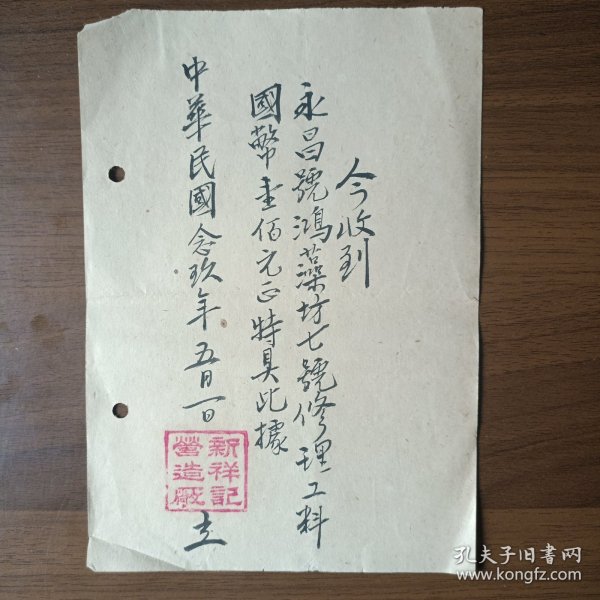 今收到
永昌號鴻藻坊七號修理工料
國幣壹佰元正特具此據
中華民國念玖年五月一日
新祥記
營造廠
立
孔夫子旧書网
www.kongfz.com